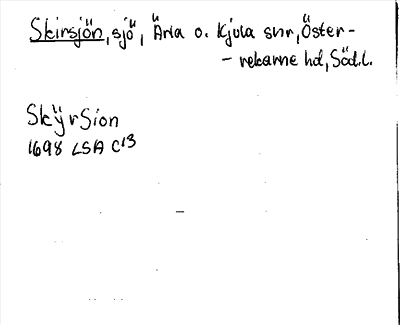 Skirsjön, sjö, Ärla o. Kjula snr, Öster-
- rekarne hd, Söd.l.
Skÿrsion
1698 LSA C13